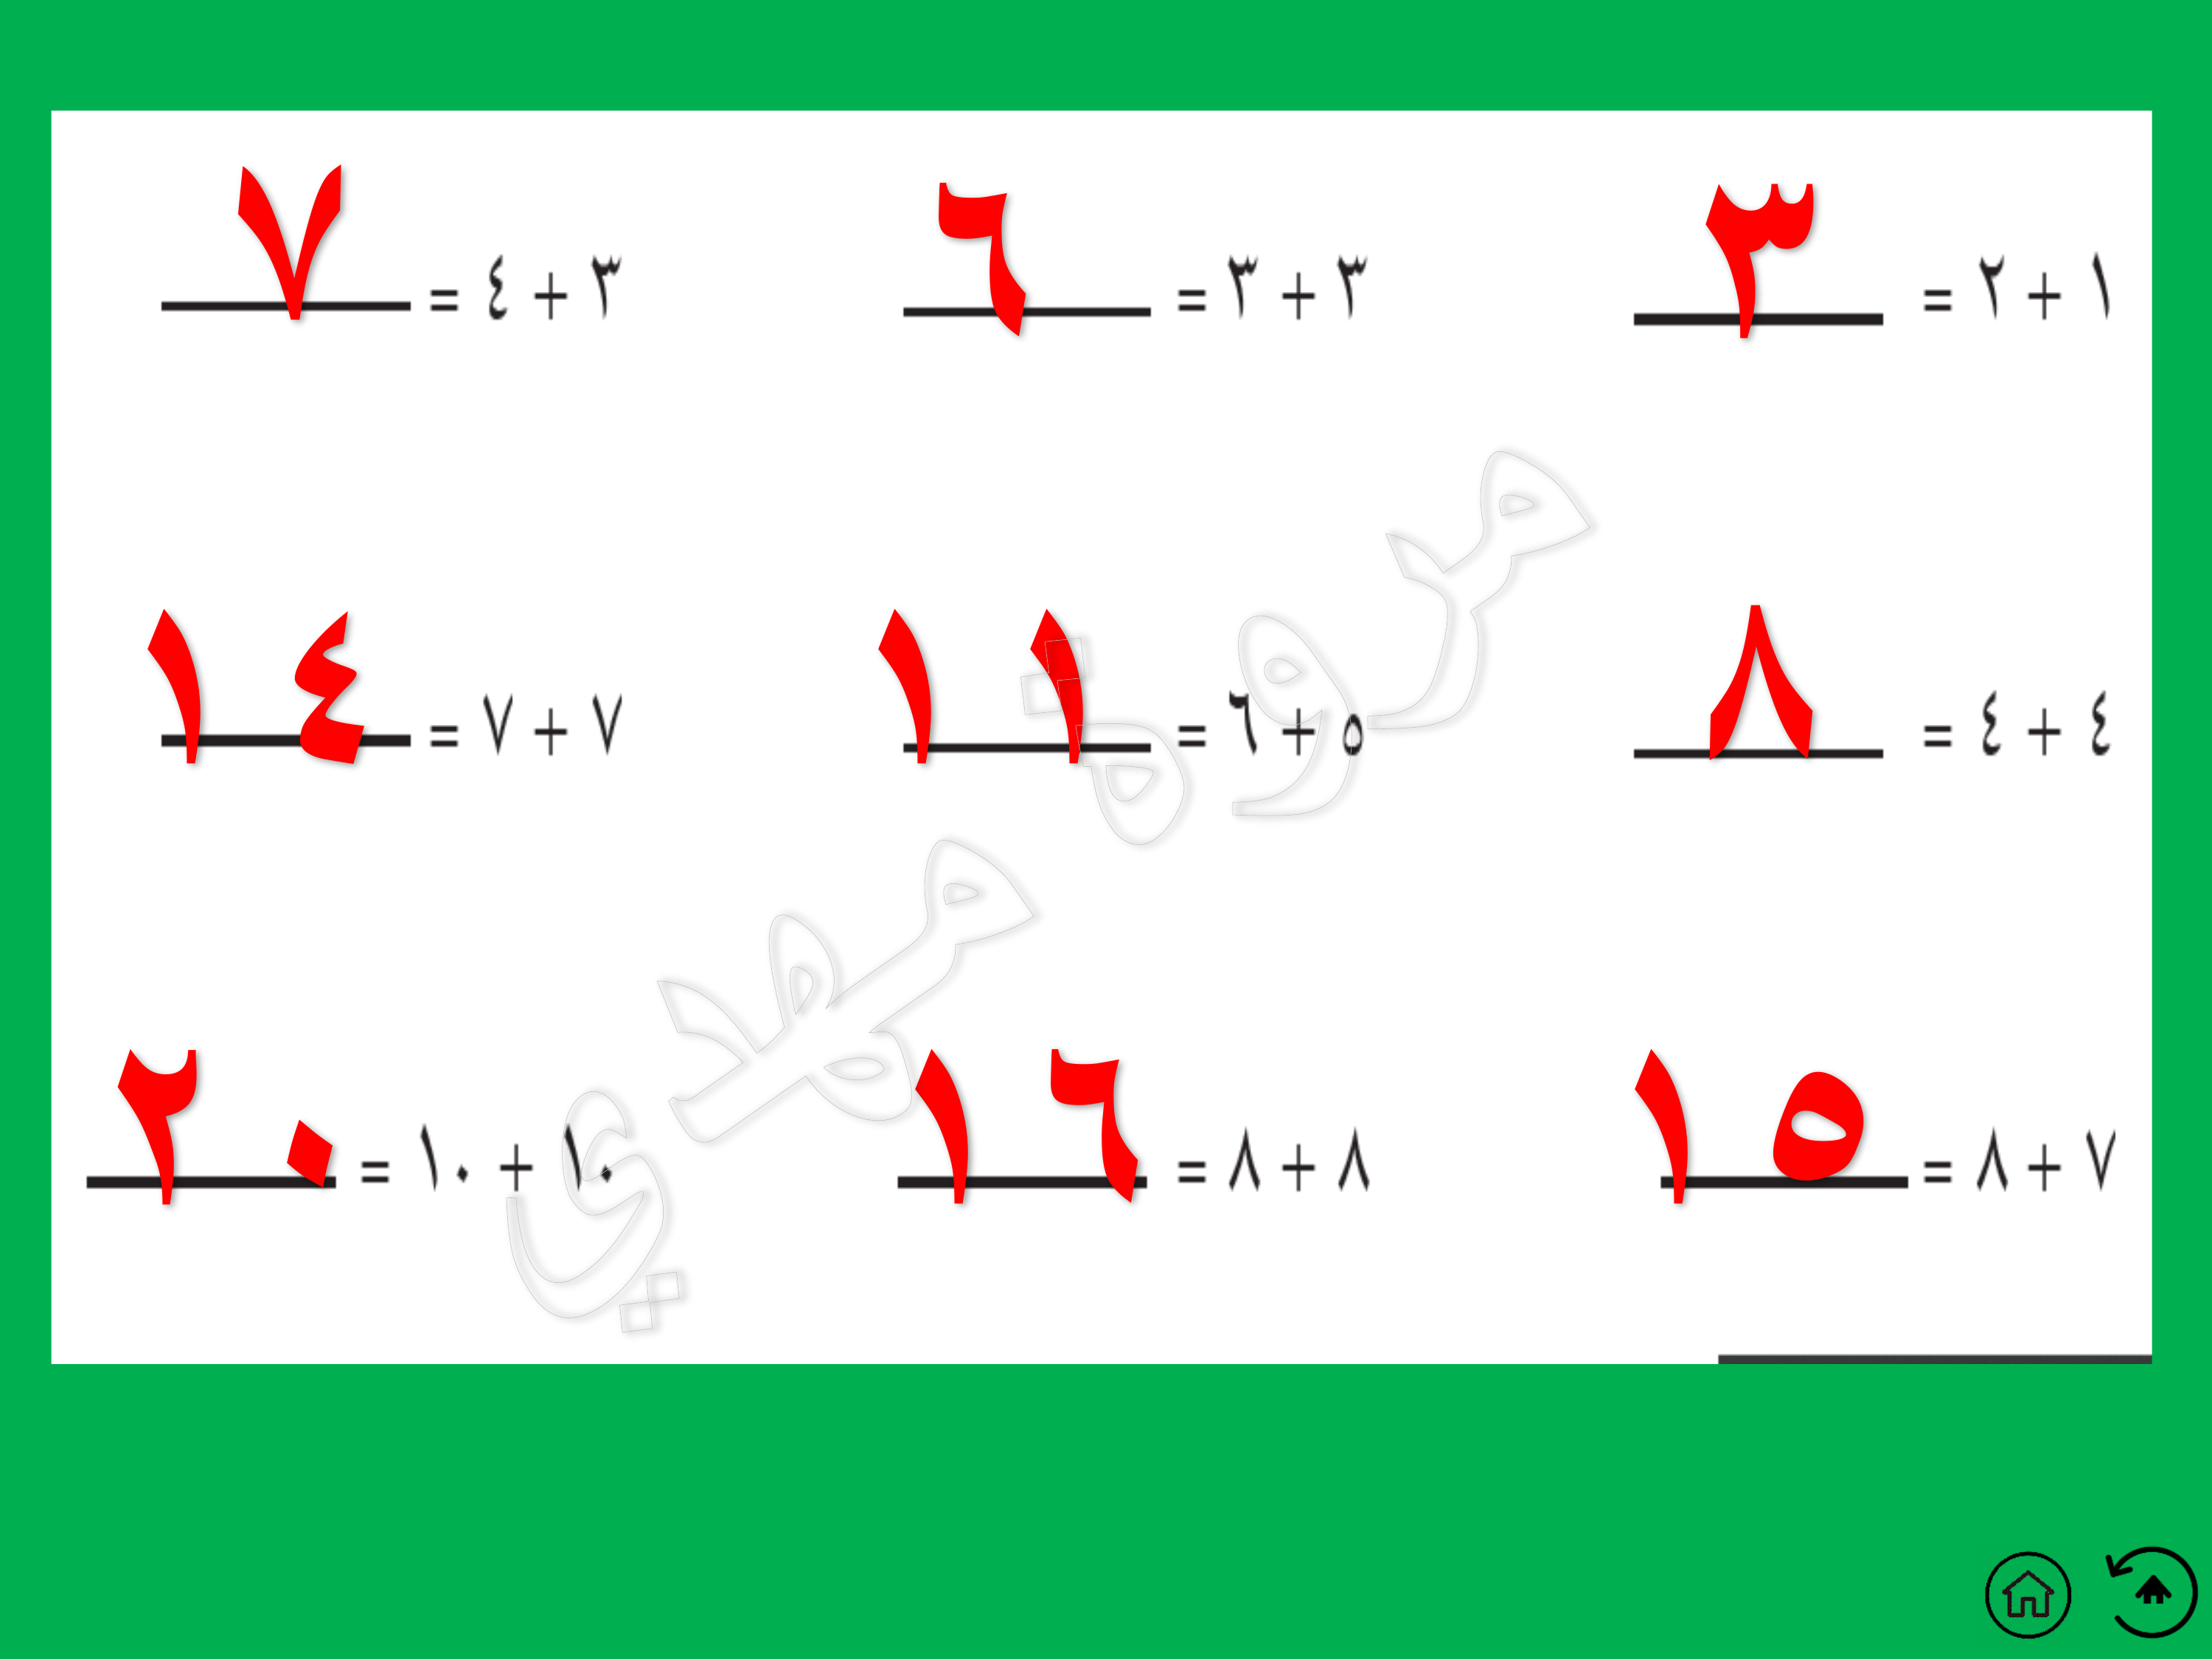 ١ + ٢ = ٣
٣ + ٣ = ٦
٣ + ٤ = ٧
٤ + ٤ = ٨
٥ + ٦ = ١١
٧ + ٧ = ١٤
٧ + ٨ = ١٥
٨ + ٨ = ١٦
١٠ + ١٠ = ٢٠
مروة
ميمني